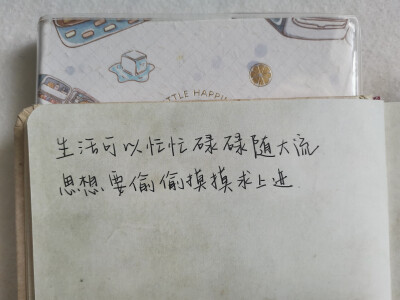 TTLE HAPPIN
生活可以忙忙碌碌随大流
思想要偷偷摸摸求上进